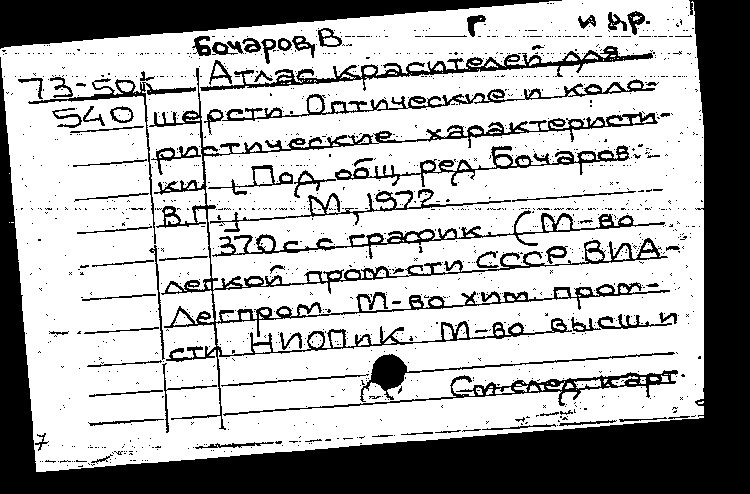 Бочаров, В. Г. и др.
73-50г Атлас красителей для
540 шерсти. Оптические и коло-
ристические характеристи-
ки. [Под общ. ред. Бочаров
В.Г.]. М., 1972.
370 с. с график. (М-во
легкой пром-сти СССР. ВИА-
Легпром. М-во хим. пром-
сти. НИОПиК. М-во высш. и
См. след. карт.
7